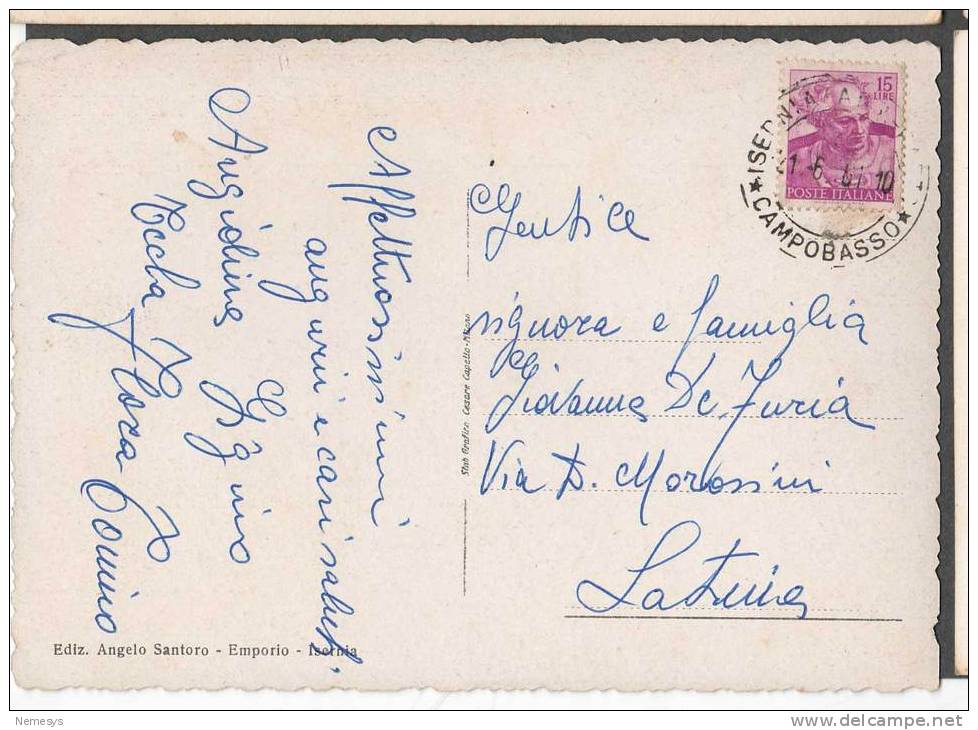 Affettuosissimi
auguri e cari saluti.
Angiolina Gigino
Tecla Flora Tonino
Gentile
signora e famiglia
Giovanna De Furia
Via D. Morosini
Latina
15
LIRE
POSTE ITALIANE
★ISERNIA
★CAMPOBASSO★
6 10
Stab Grafico Cesare Capello-Milano
Ediz. Angelo Santoro - Emporio - Isernia
Nemesys
www.delcampe.net